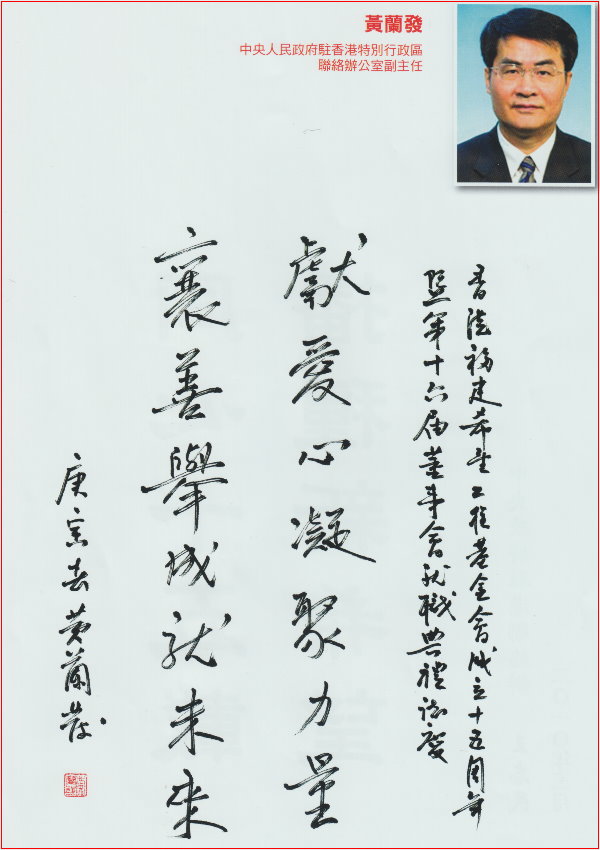 黃蘭發
中央人民政府駐香港特別行政區
聯絡辦公室副主任
香港福建希望工程基金會成立十五周年
暨第十六屆董事會就職典禮誌慶
獻愛心凝聚力量
襄善舉成就未來
庚寅春 黃蘭發